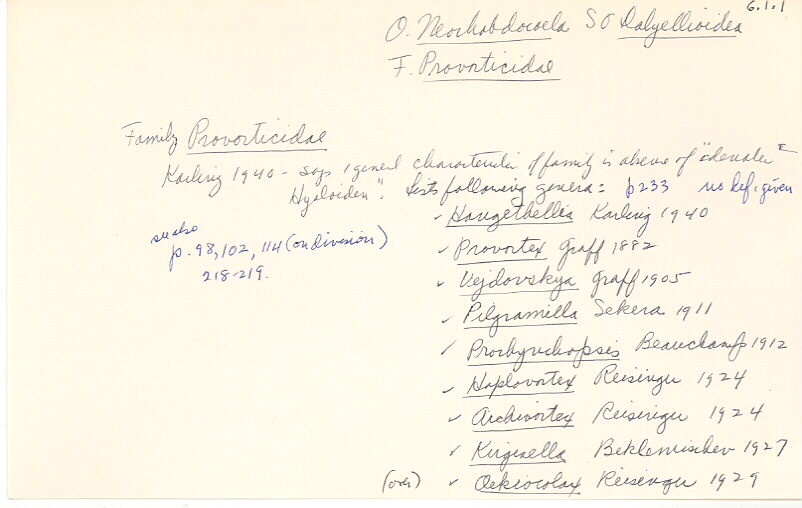 6.1.1
O. Neorhabdocoela SO Dalyellioidea
F. Provorticidae
Family Provorticidae
Karling 1940 - says 1 general characteristic of family is absence of "adenaler
Hyaloiden". Lists following genera: p233 no def. given
see also
p. 98, 102, 114 (on division)
218-219.
✓ Hangethellia Karling 1940
✓ Provortex Graff 1882
✓ Vejdovskya Graff 1905
✓ Pilgramilla Sekera 1911
✓ Prorhynchopsis Beauchamp 1912
✓ Haplovortex Reisinger 1924
✓ Archivortex Reisinger 1924
✓ Kirgisella Beklemischev 1927
(over) ✓ Oekiocolax Reisinger 1929